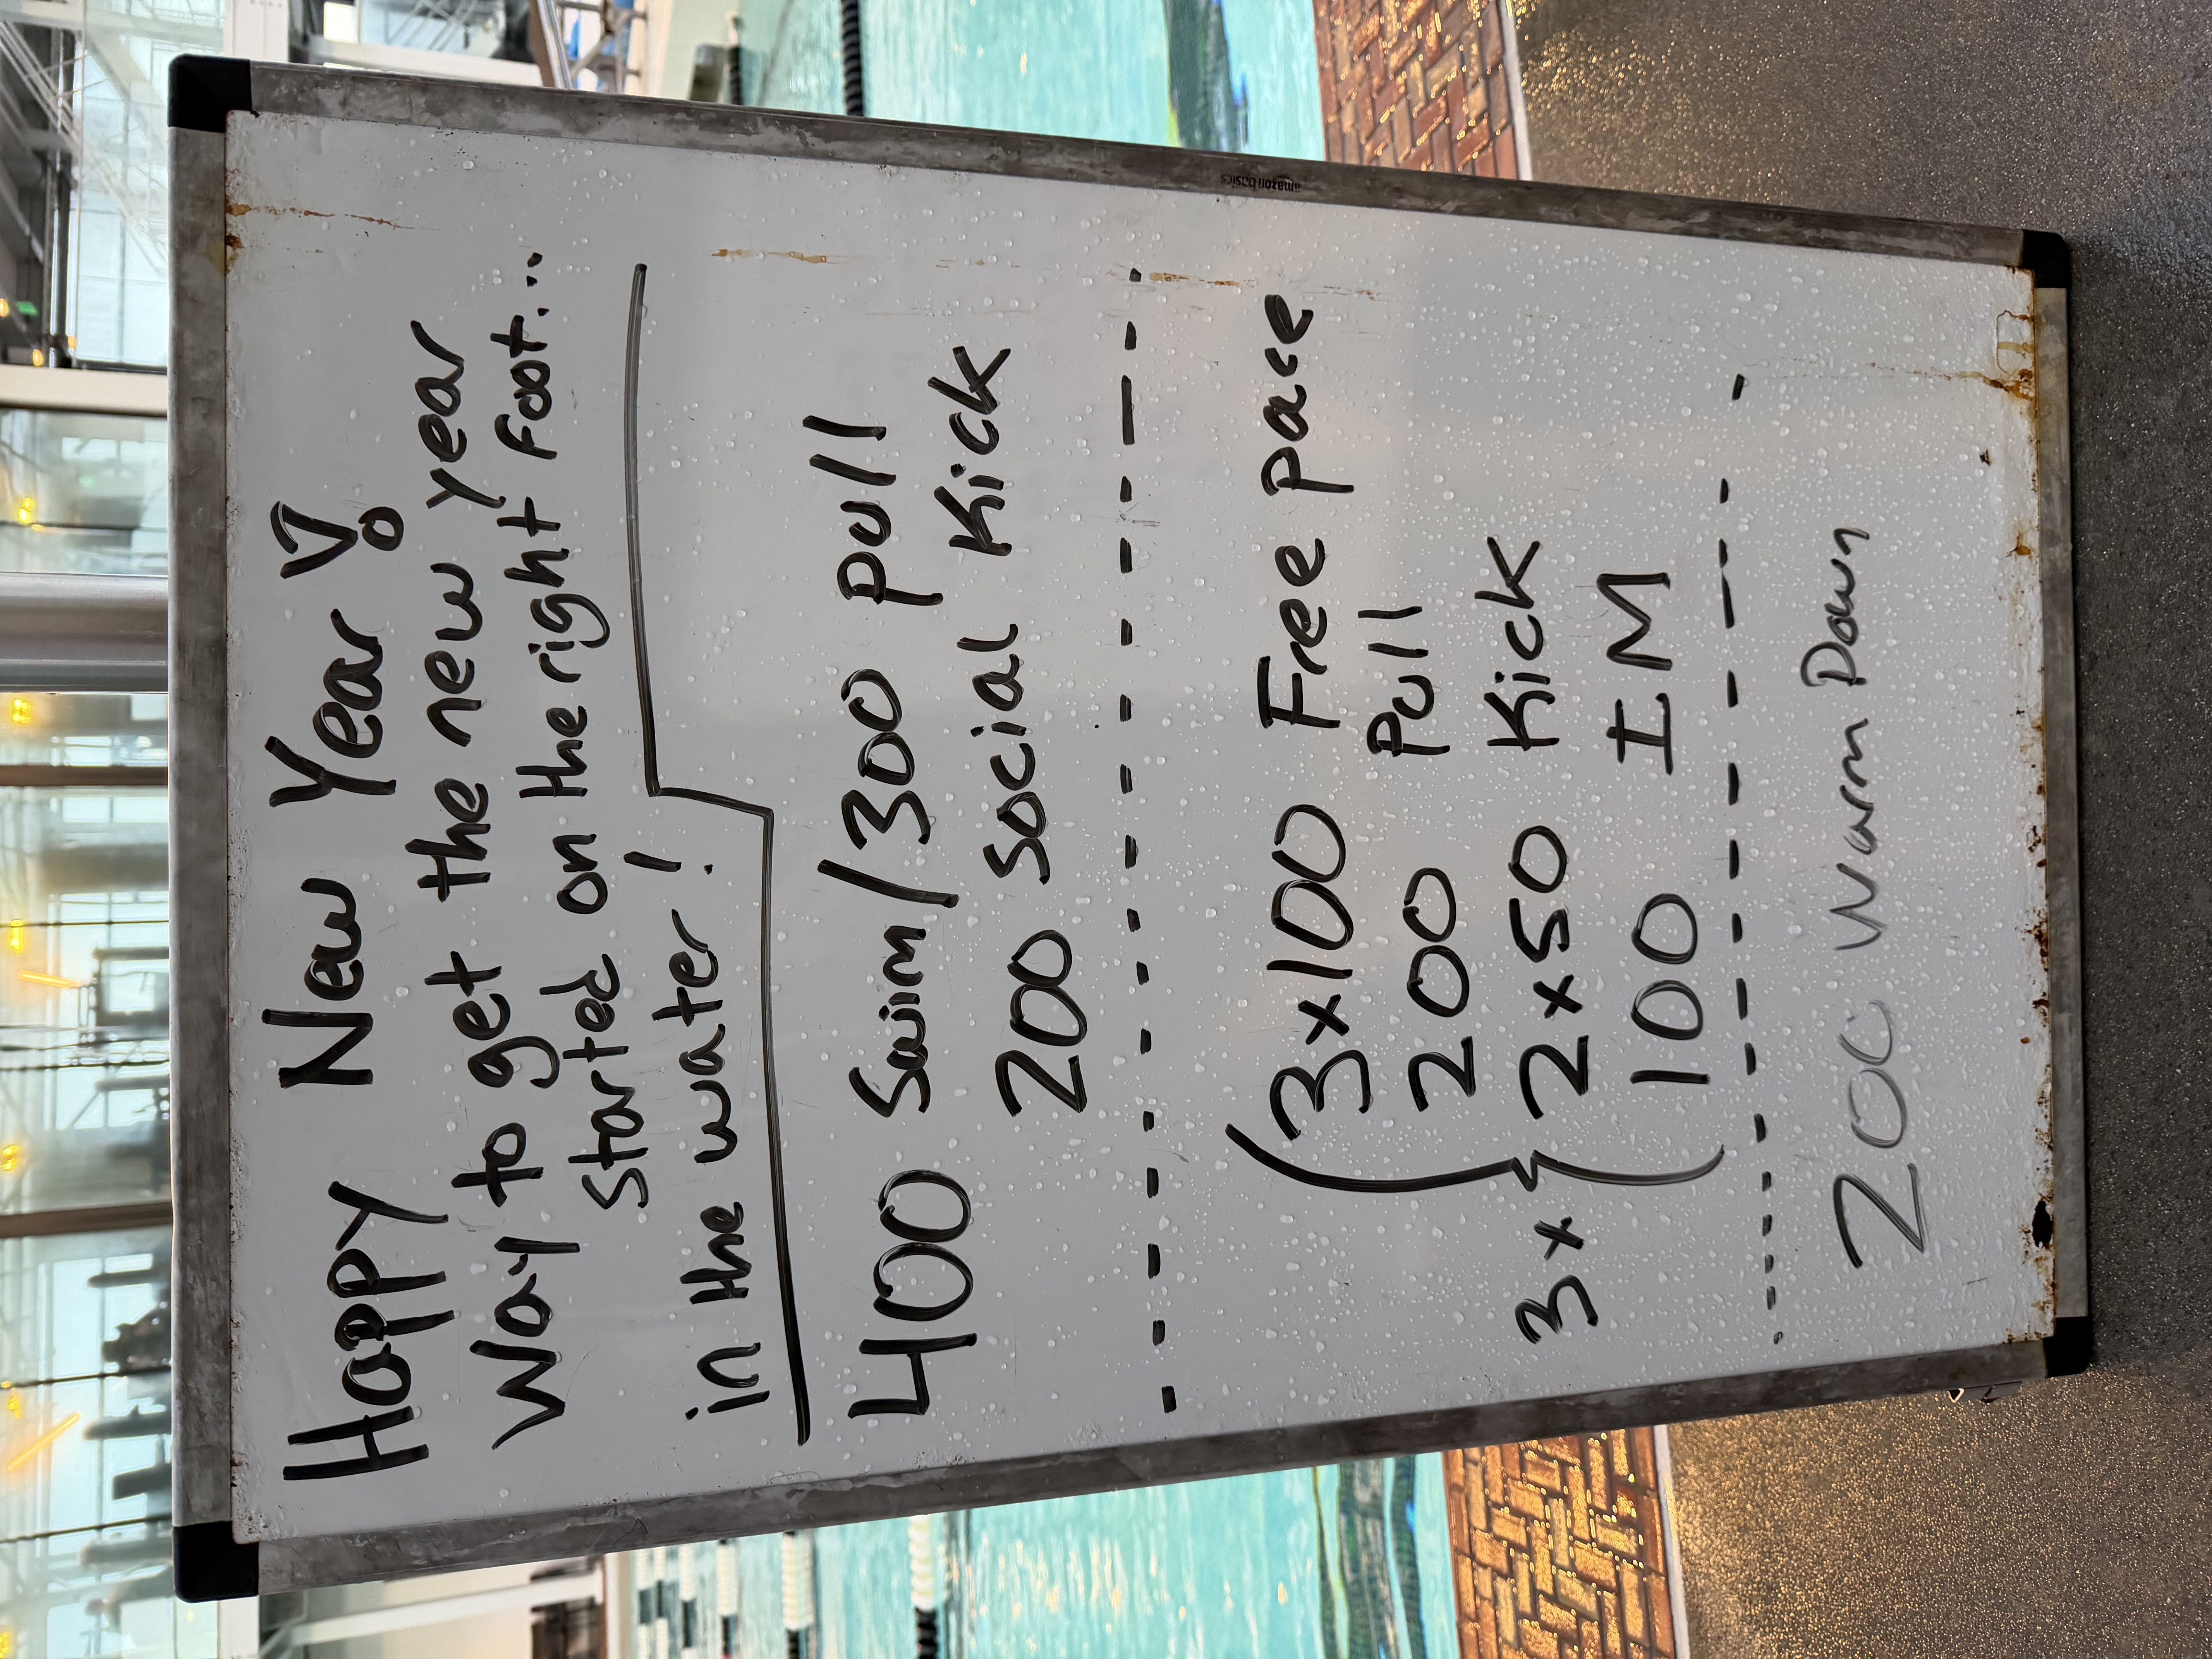 Happy New Year!
Way to get the new year
started on the right foot...
in the water!
400 Swim/300 pull
200 social Kick
3x100 Free pace
200 Pull
3x { 2x50 Kick
100 IM
200 Warm Down
amazonbasics